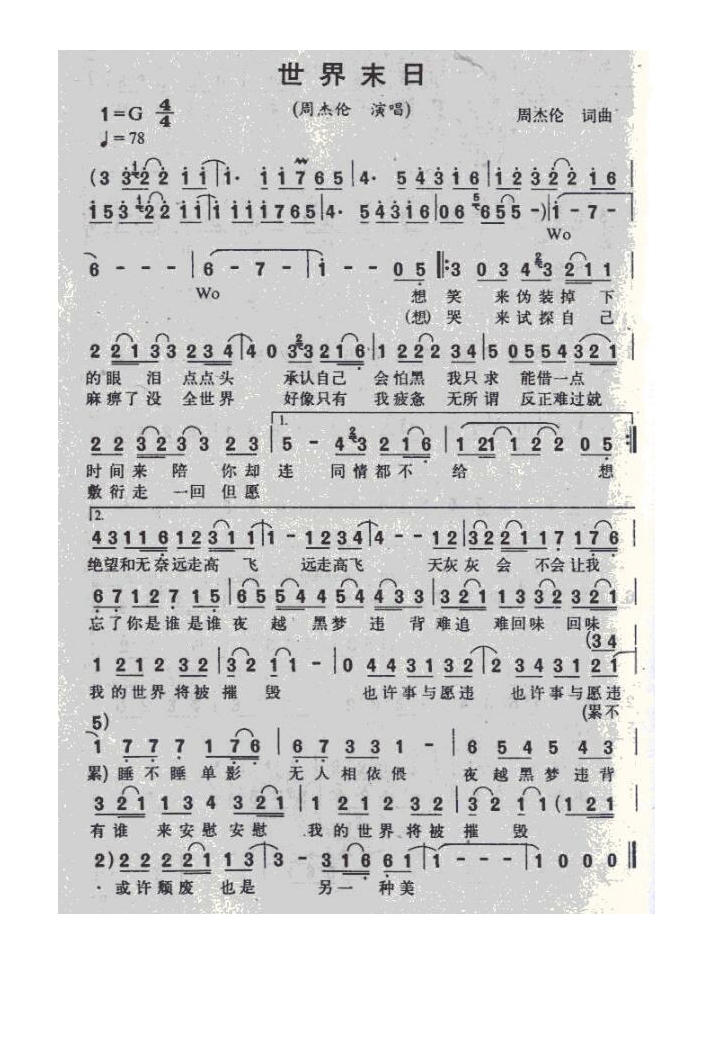 世界末日
(周杰伦 演唱)
1=G 4/4
周杰伦 词曲
♩=78
(3 3 2 2 1 1 | 1· 1 1 7 6 5 | 4· 5 4 3 1 6 | 1 2 3 2 2 1 6 |
1 5 3 2 2 1 1 | 1 1 1 1 7 6 5 | 4· 5 4 3 1 6 | 0 6 6 5 5 -) | 1 - 7 -
Wo
6 - - - | 6 - 7 - | 1 - - 0 5 ‖: 3 0 3 4 3 2 1 1 |
Wo 想 笑 来 伪 装 掉 下
(想) 哭 来 试 探 自 己
2 2 1 3 3 2 3 4 | 4 0 3 3 2 1 6 | 1 2 2 2 3 4 | 5 0 5 5 4 3 2 1 |
的 眼 泪 点 点 头 承 认 自 己 会 怕 黑 我 只 求 能 借 一 点
麻 痹 了 没 全 世 界 好 像 只 有 我 疲 惫 无 所 谓 反 正 难 过 就
1.
2 2 3 2 3 3 2 3 | 5 - 4 3 2 1 6 | 1 2 1 1 2 2 0 5 :‖
时 间 来 陪 你 却 连 同 情 都 不 给 想
敷 衍 走 一 回 但 愿
2.
4 3 1 1 6 1 2 3 1 1 | 1 - 1 2 3 4 | 4 - - 1 2 | 3 2 2 1 1 7 1 7 6 |
绝 望 和 无 奈 远 走 高 飞 远 走 高 飞 天 灰 灰 会 不 会 让 我
6 7 1 2 7 1 5 | 6 5 5 4 4 5 4 4 3 3 | 3 2 1 1 3 3 2 3 2 1 |
忘 了 你 是 谁 是 谁 夜 越 黑 梦 违 背 难 追 难 回 味 回 味
(3 4
1 2 1 2 3 2 | 3 2 1 1 - | 0 4 4 3 1 3 2 | 2 3 4 3 1 2 1 |
我 的 世 界 将 被 摧 毁 也 许 事 与 愿 违 也 许 事 与 愿 违
(累 不
5)
1 7 7 7 1 7 6 | 6 7 3 3 1 - | 6 5 4 5 4 3
累) 睡 不 睡 单 影 无 人 相 依 偎 夜 越 黑 梦 违 背
3 2 1 1 3 4 3 2 1 | 1 2 1 2 3 2 | 3 2 1 1 (1 2 1
有 谁 来 安 慰 安 慰 我 的 世 界 将 被 摧 毁
2) 2 2 2 2 1 1 3 | 3 - 3 1 6 6 1 | 1 - - - | 1 0 0 0 ‖
或 许 颓 废 也 是 另 一 种 美